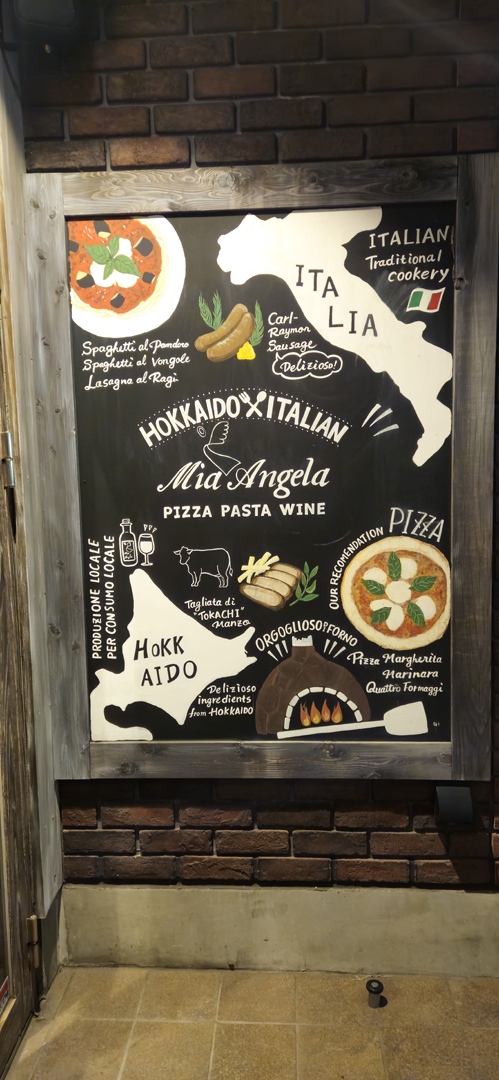 ITALIAN
Traditional
cookery
ITA
LIA
Carl-
Raymon
Sausage
Delizioso!
Spaghetti al Pomodoro
Spaghetti al Vongole
Lasagna al Ragù
HOKKAIDO ITALIAN
Mia Angela
PIZZA PASTA WINE
PRODUZIONE LOCALE
PER CONSUMO LOCALE
Tagliata di
"TokACHI"
Manzo
HOKK
AIDO
Delizioso
ingredients
from HOKKAIDO
OUR RECOMENDATION
PIZZA
ORGOGLIOSO FORNO
Pizza Margherita
Marinara
Quattro Formaggi